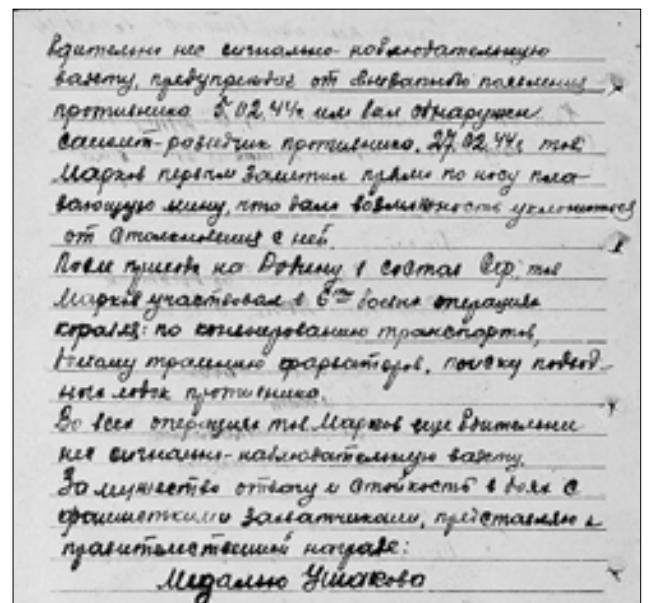 бдительно нес сигнально-наблюдательную
вахту, предупреждая от внезапного появления
противника 5.02.44г. им был обнаружен
самолет-разведчик противника. 27.02.44г. тов.
Марков первым заметил прямо по носу пла-
вающую мину, что дало возможность уклониться
от столкновения с ней.
После прихода на Родину в состав тов
Марков участвовал в 6ти боевых операциях
корабля: по конвоированию транспортов,
тралению фарватеров, поиску подвод-
ных лодок противника.
Во всех операциях тов. Марков еще бдительнее
нес сигнально-наблюдательную вахту.
За мужество отвагу и стойкость в боях с
фашистскими захватчиками, представляю к
правительственной награде:
Медалью Ушакова